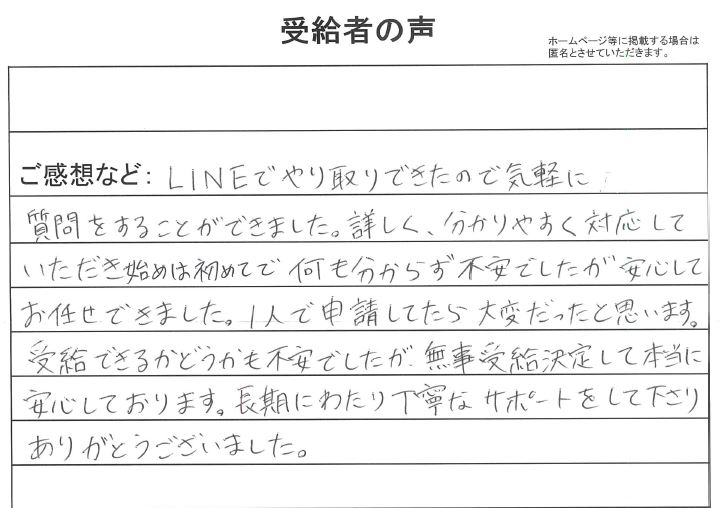 受給者の声
ホームページ等に掲載する場合は
匿名とさせていただきます。
ご感想など: LINEでやり取りできたので気軽に
質問をすることができました。詳しく、分かりやすく対応して
いただき始めは初めてで何も分からず不安でしたが安心して
お任せできました。1人で申請してたら大変だったと思います。
受給できるかどうかも不安でしたが、無事受給決定して本当に
安心しております。長期にわたり丁寧なサポートをして下さり
ありがとうございました。